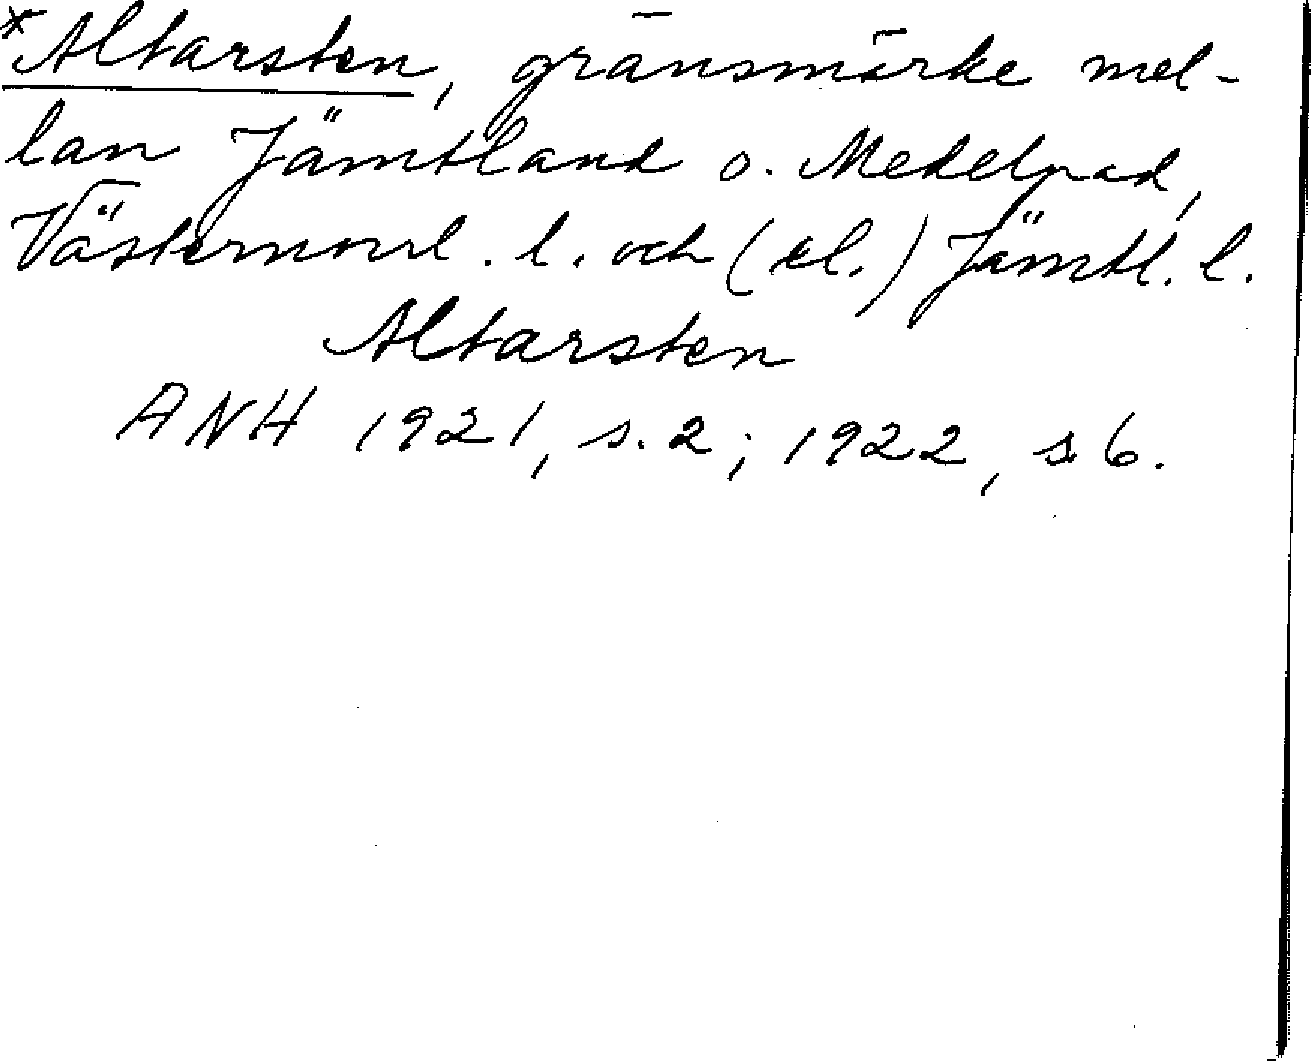 *Altarsten, gränsmärke mel-
lan Jämtland o. Medelpad,
Västernorrl. l. och (el.) Jämtl. l.
Altarsten
ANH 1921, s. 2; 1922, s 6.